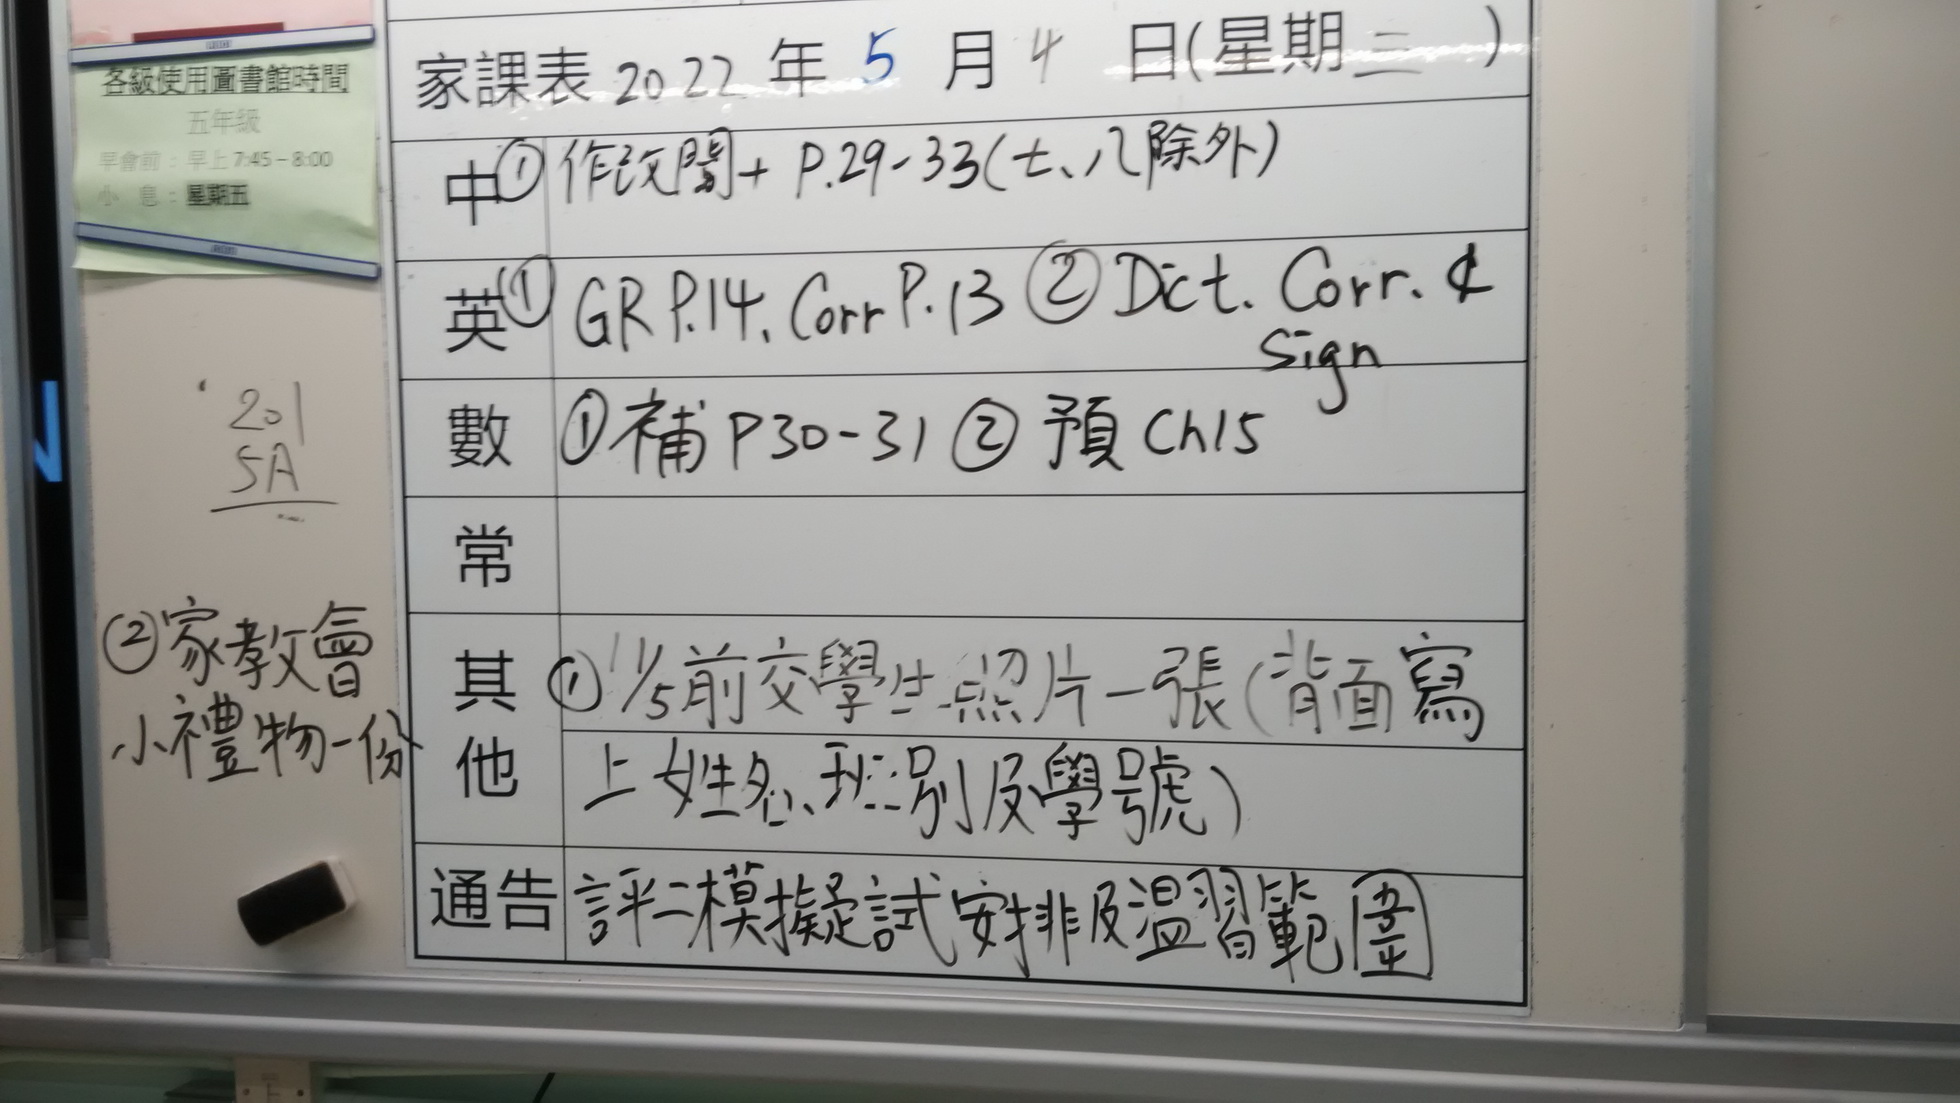 各級使用圖書館時間
五年級
早會前：早上 7:45－8:00
小 息：星期五
家課表 2022 年 5 月 4 日(星期三)
中 ① 作改閱+ P.29-33(七、八除外)
英 ① GR P.14, Corr P.13 ② Dict. Corr. &
Sign
數 ① 補 P30-31 ② 預 Ch15
常
其他 ① 11/5前交學生照片一張(背面寫
上姓名、班別及學號)
通告 評二模擬試安排及溫習範圍
201
5A
②家教會
小禮物一份